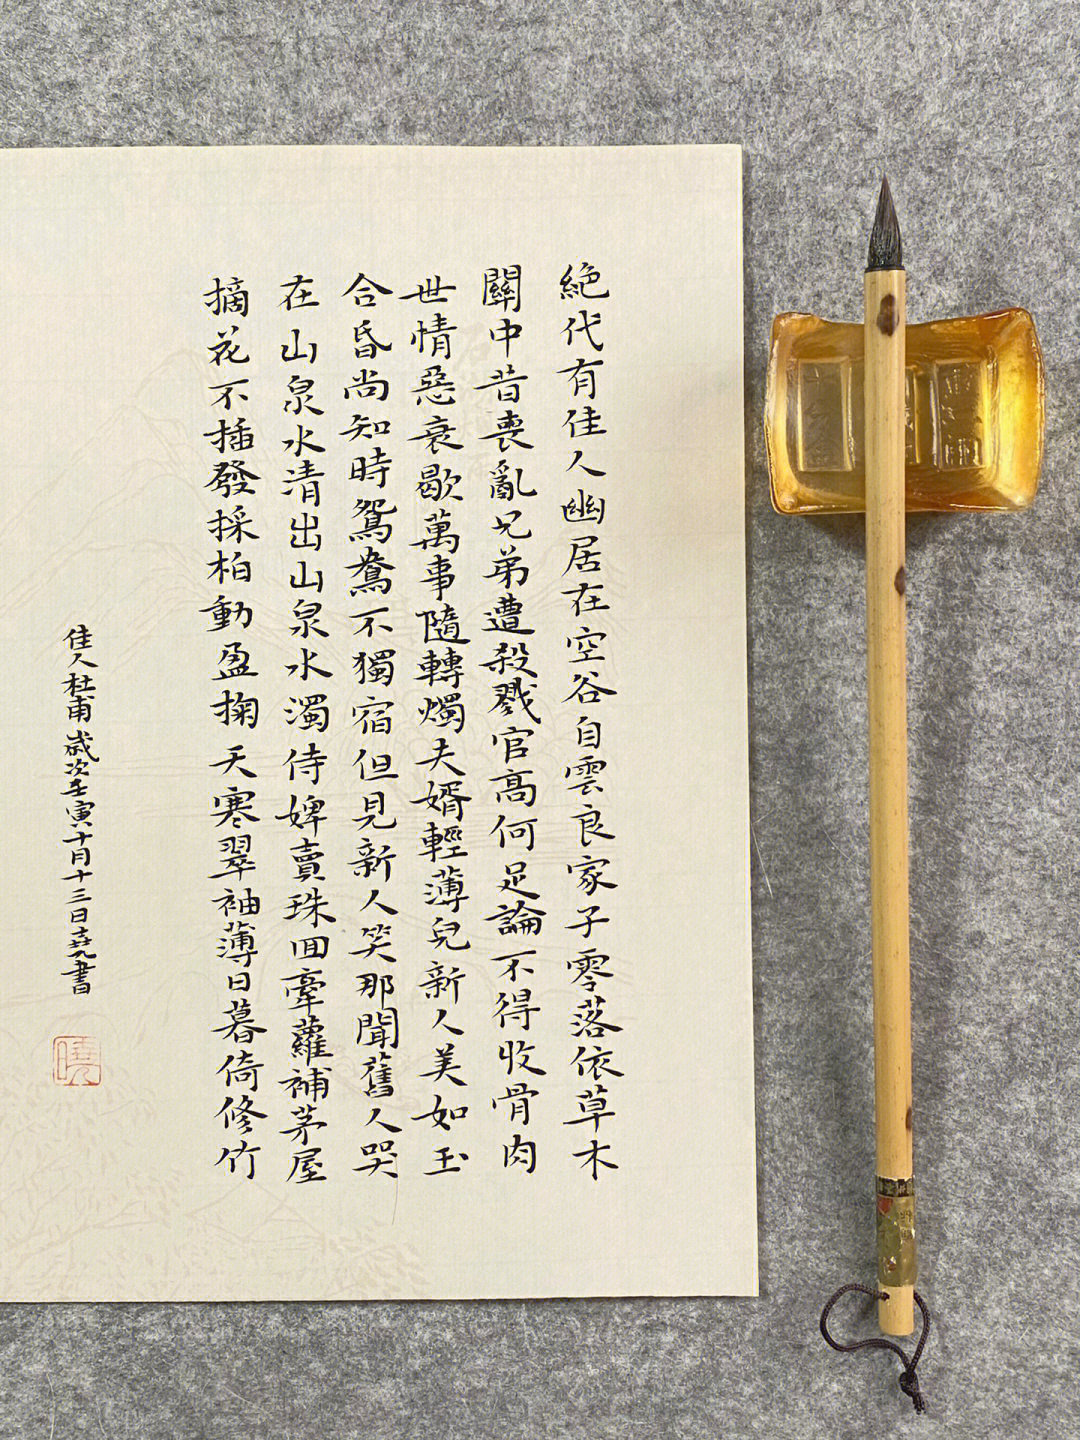 絶代有佳人幽居在空谷自雲良家子零落依草木
關中昔喪亂兄弟遭殺戮官高何足論不得收骨肉
世情惡衰歇萬事隨轉燭夫婿輕薄兒新人美如玉
合昏尚知時鴛鴦不獨宿但見新人笑那聞舊人哭
在山泉水清出山泉水濁侍婢賣珠回牽蘿補茅屋
摘花不插發採柏動盈掬天寒翠袖薄日暮倚修竹
佳人杜甫 歲次壬寅十月十三日堯書
曉